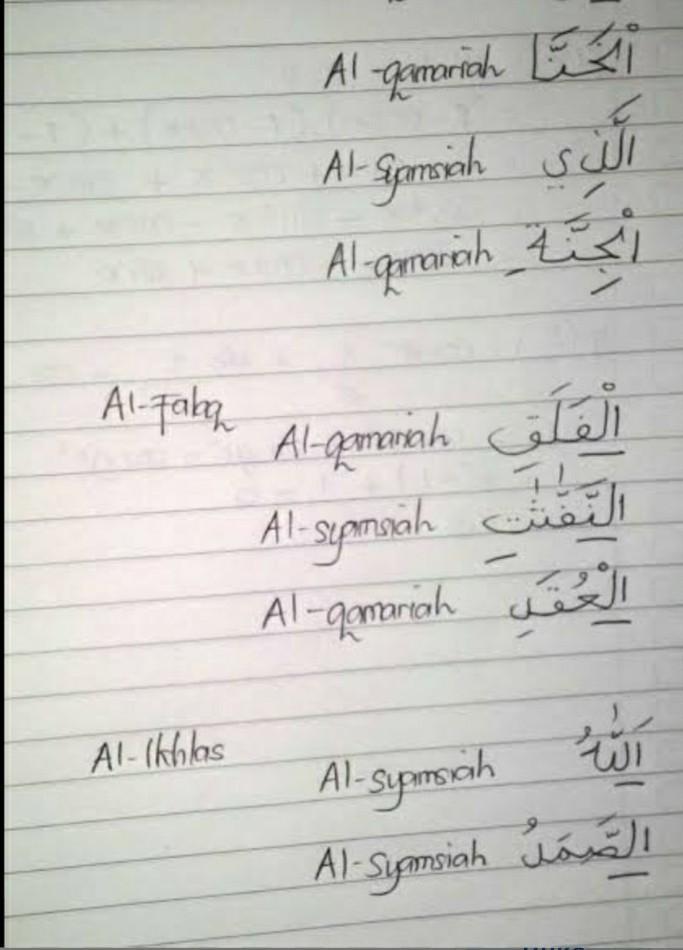 Al-qamariah الْخَنَّا
Al-Syamsiah الَّذِي
Al-qamariah الْجِنَّةِ
Al-Falaq Al-qamariah الْفَلَق
Al-syamsiah النَّفّٰثٰتِ
Al-qamariah الْعُقَدِ
Al-Ikhlas Al-syamsiah اَللّٰهُ
Al-Syamsiah الصَّمَدُ